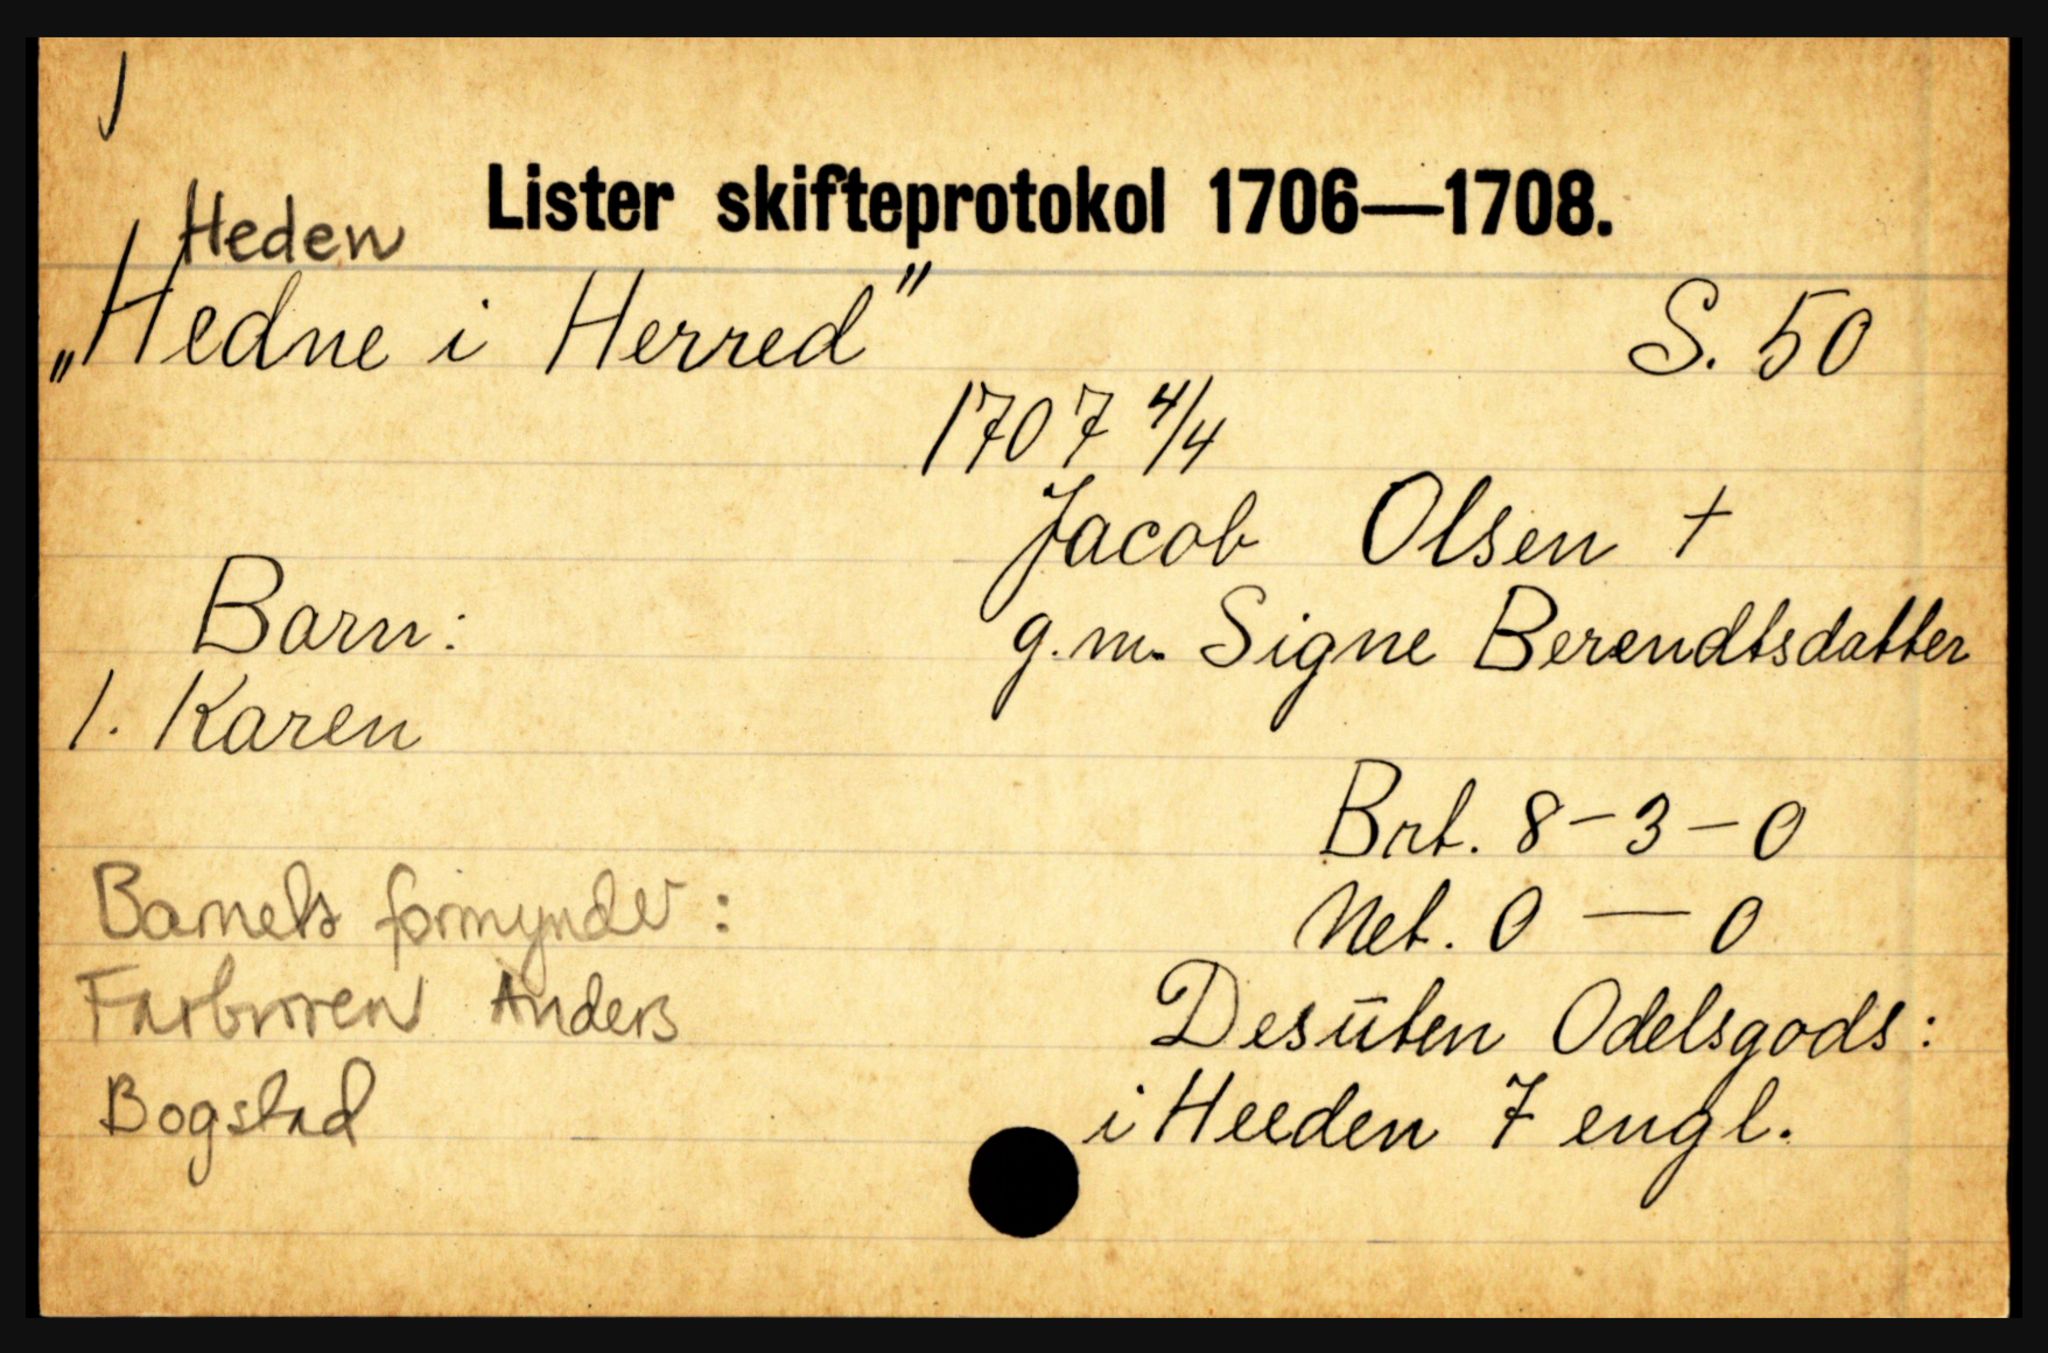 Lister skifteprotokol 1706—1708.
Heden
„Hedne i Herred” S. 50
1707 4/4
Jacob Olsen †
g.m. Signe Berendtsdatter
Barn:
1. Karen
Brt. 8-3-0
Net. 0 — 0
Desūten Odelsgods:
i Heeden 7 engl.
Barnets formynder:
Farbroren Anders
Bogstad